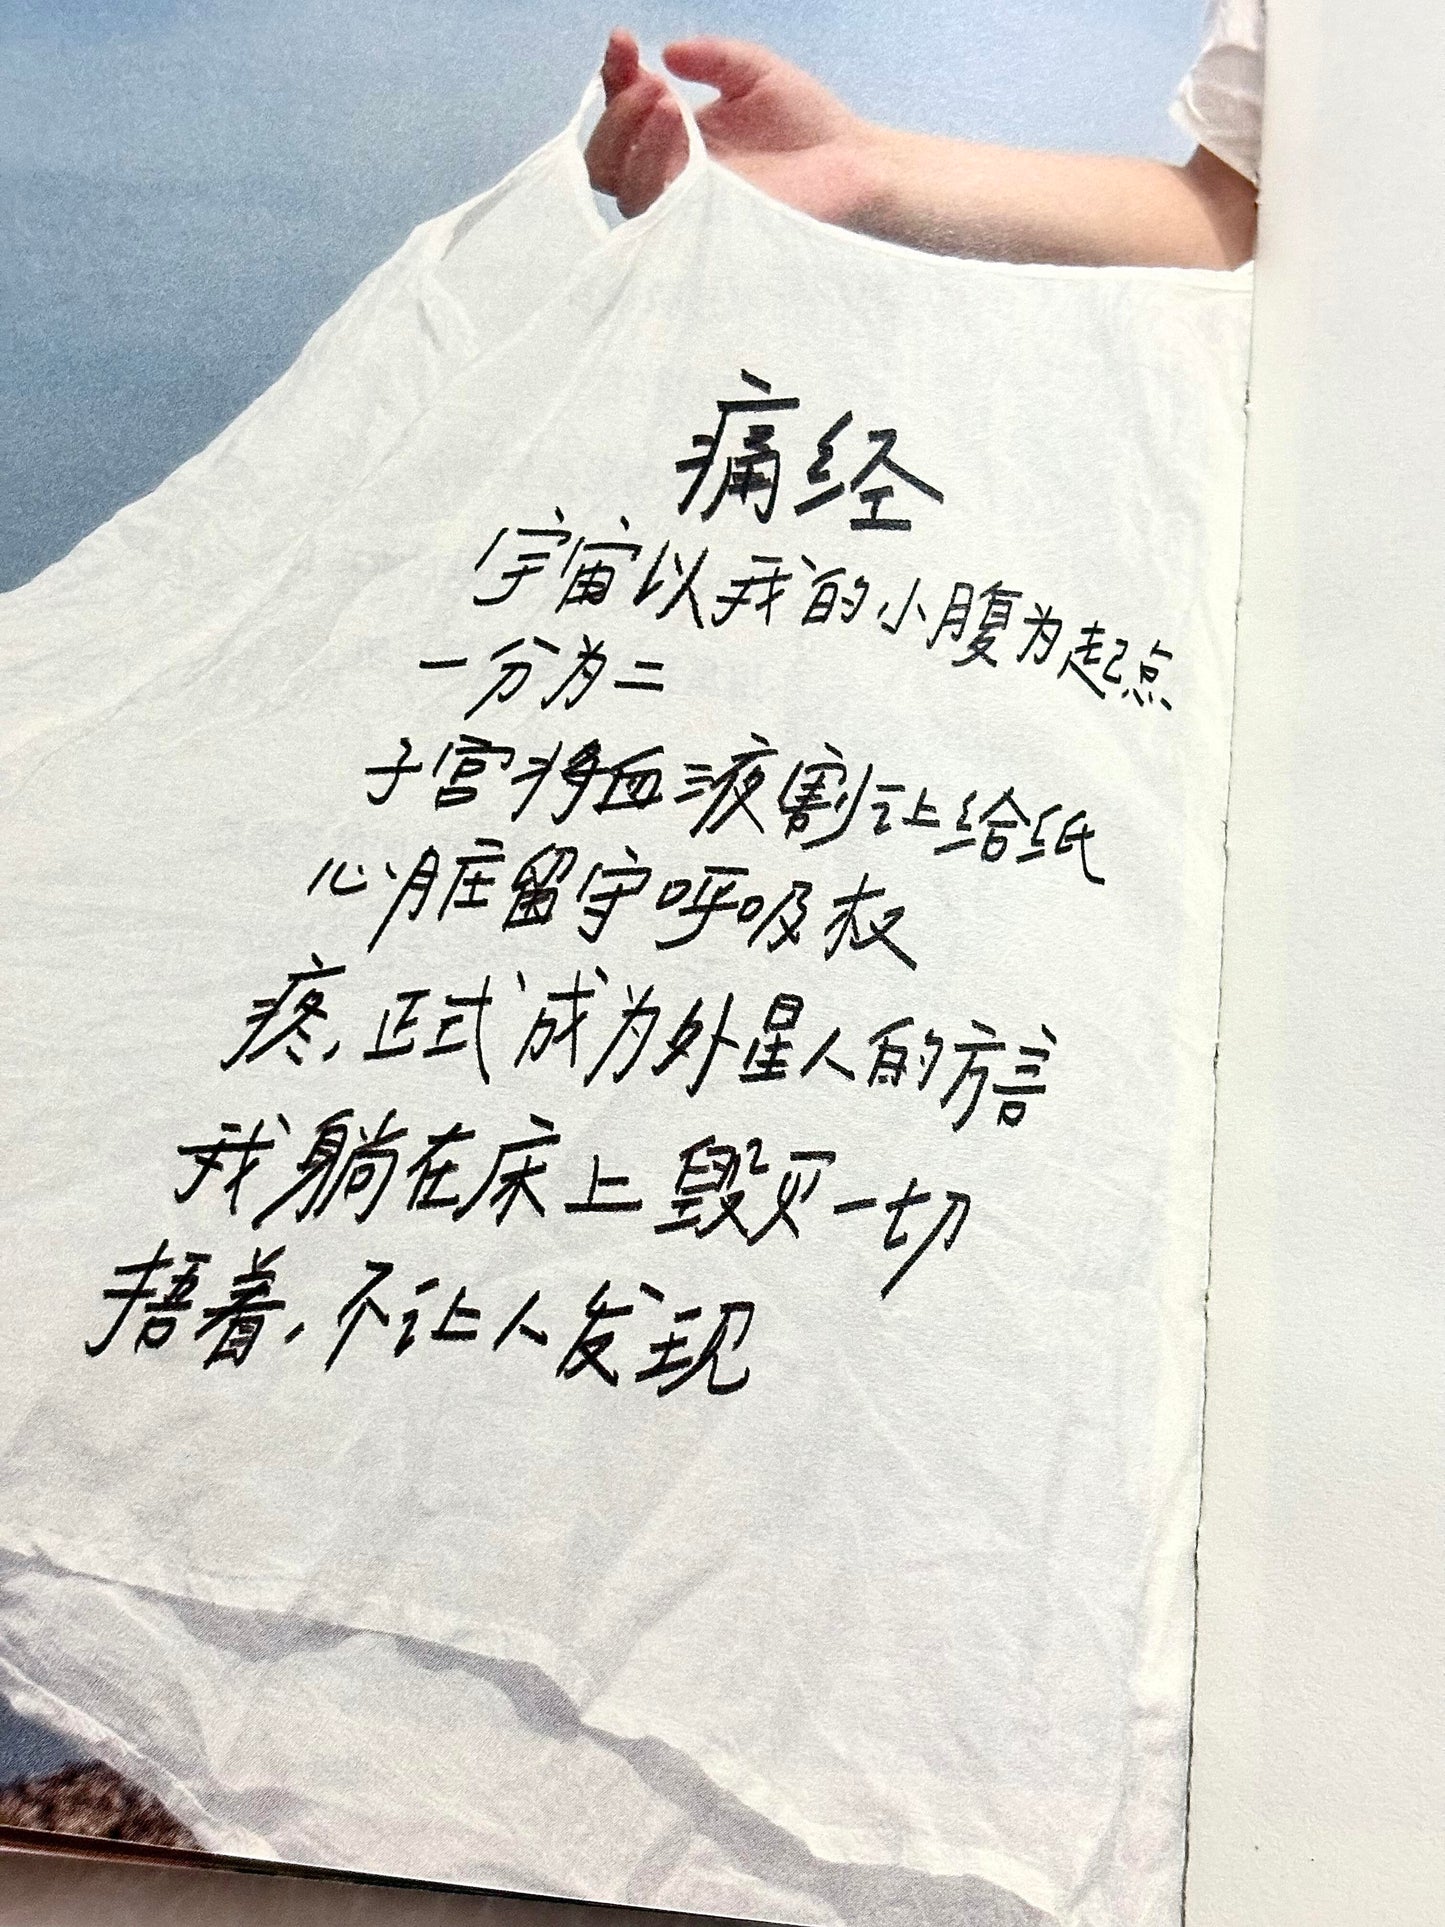 痛经
宇宙以我的小腹为起点
一分为二
子宫将血液割让给纸
心脏留守呼吸权
疼，正式成为外星人的方言
我躺在床上毁灭一切
捂着，不让人发现